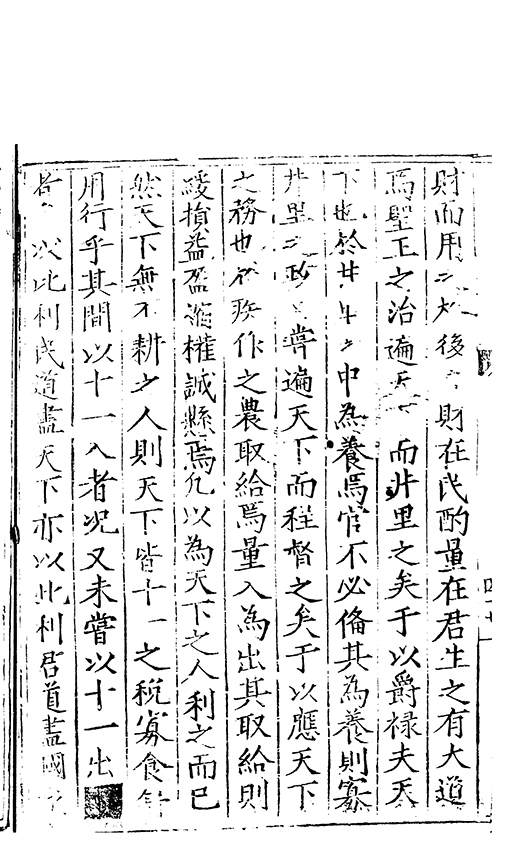 財而用之故後財在民酌量在君生之有大道
焉聖王之治遍天下而井里之矣于以爵祿夫天
下也於井中為養焉官不必備其為養則寡
井里之政嘗遍天下而程督之矣于以應天下
之務也疾作之農取給焉量入為出其取給則
綏損益盈權誠縣焉凡以為天下之人利之而已
然天下無不耕之人則天下皆十一之稅寡食
用行乎其間以十一入者況又未嘗以十一出
者以此利民道盡天下亦以此利君道蓋國